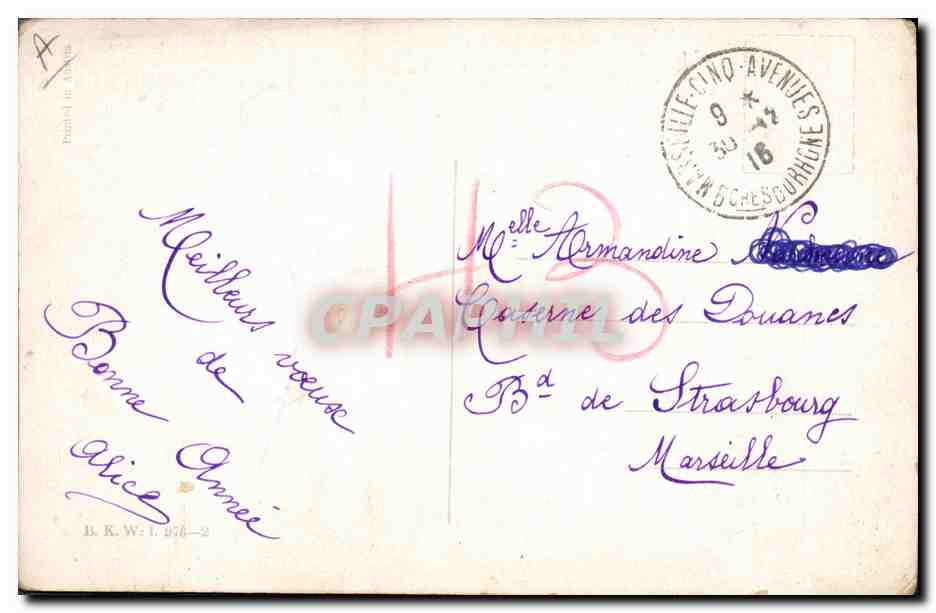 A
Printed in Austria
MARSEILLE-CINQ-AVENUES
9 *
30 -12
16
BCHES DU RHONE
H3
CPAPHIL
Meilleurs vœux
de
Bonne Année
Alice
Melle Armandine
Caserne des Douanes
Bd de Strasbourg
Marseille
B. K. W. I. 976-2